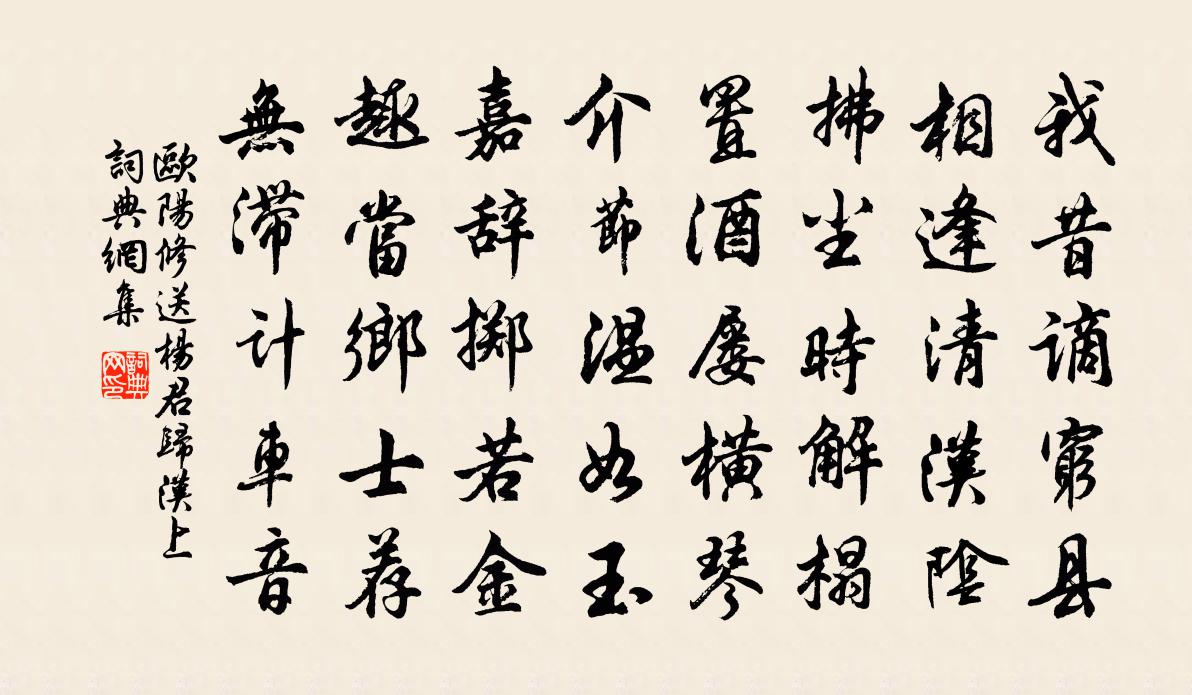 我昔谪窮县
相逢清漢陰
拂尘時解榻
置酒屡横琴
介節温如玉
嘉辞掷若金
趣當鄉士荐
無滞计車音
歐陽修送楊君歸漢上
詞典網集
詞典
网印